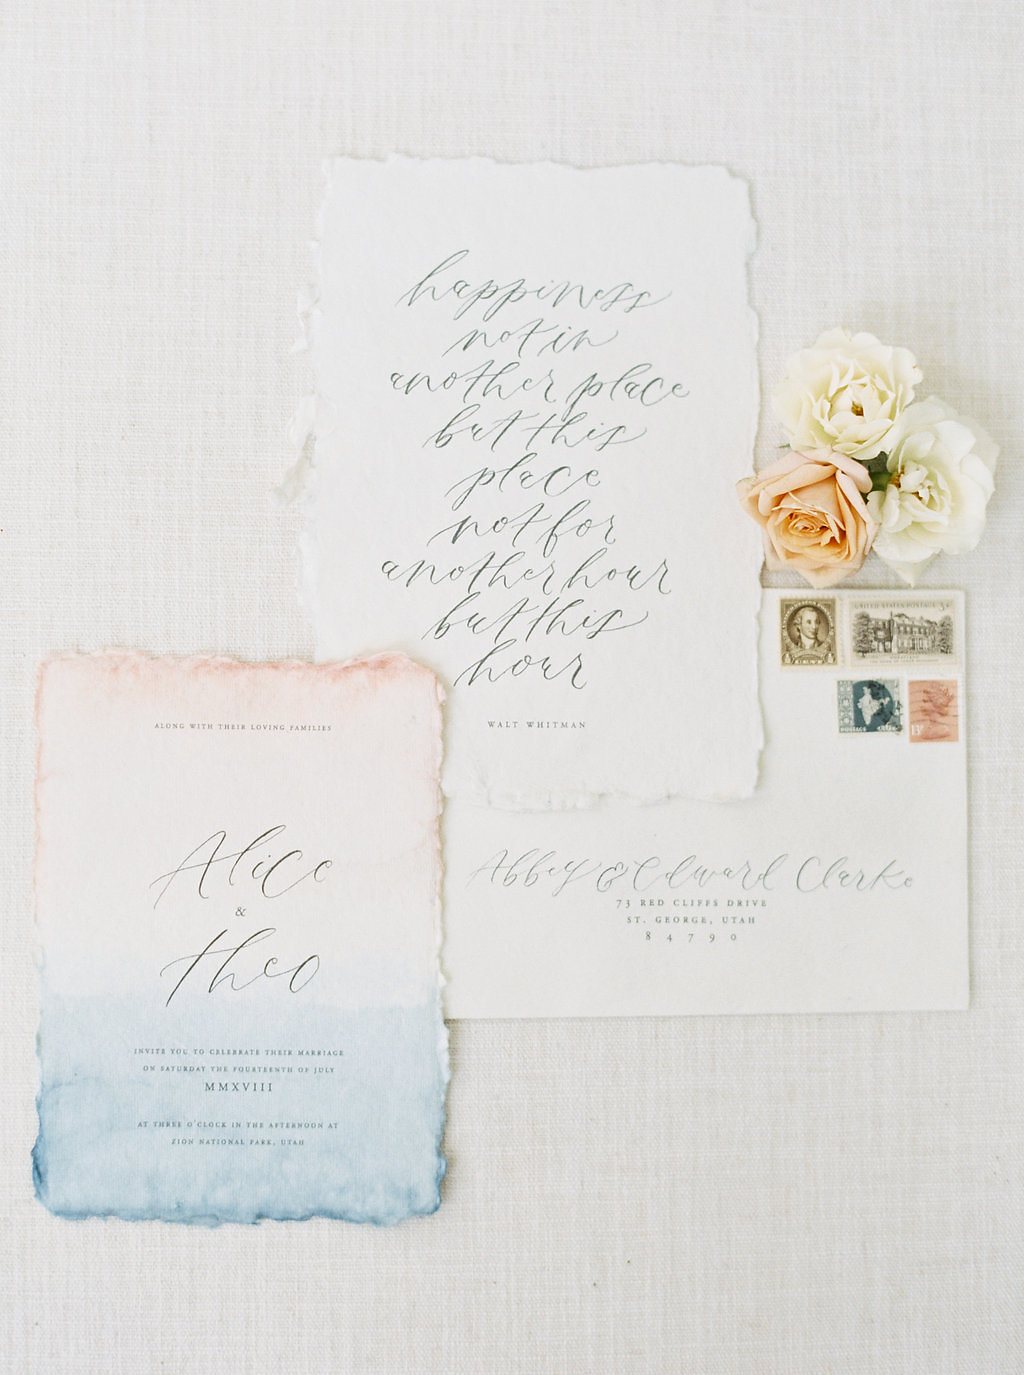 happiness
not in
another place
but this
place
not for
another hour
but this
hour
WALT WHITMAN
UNITED STATES POSTAGE 3¢
POSTAGE
13P
Abbey & Edward Clarke
73 RED CLIFFS DRIVE
ST. GEORGE, UTAH
84790
ALONG WITH THEIR LOVING FAMILIES
Alice
&
Theo
INVITE YOU TO CELEBRATE THEIR MARRIAGE
ON SATURDAY THE FOURTEENTH OF JULY
MMXVIII
AT THREE O'CLOCK IN THE AFTERNOON AT
ZION NATIONAL PARK, UTAH